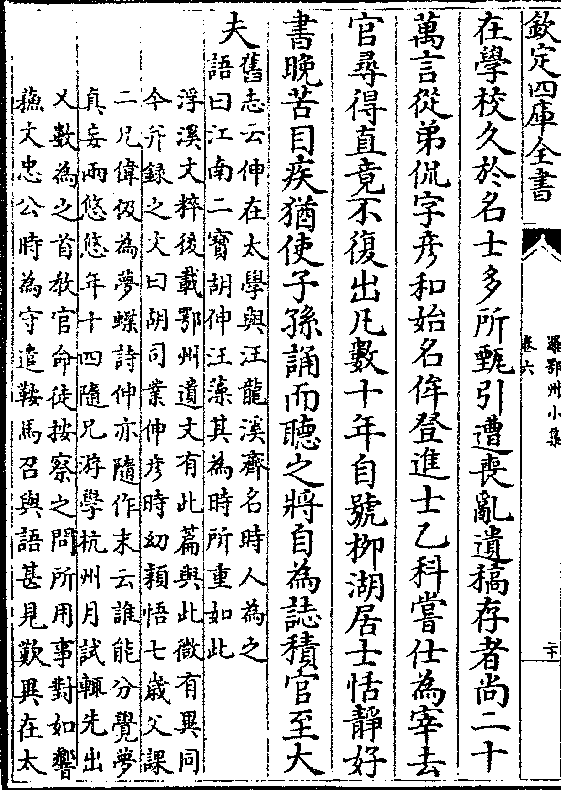 欽定四庫全書
羅鄂州小集
卷六
二十
在學校久於名士多所甄引遭喪亂遺稿存者尚二十
萬言從弟侃字彦和始名侔登進士乙科嘗仕為宰去
官尋得直竟不復出凡數十年自號柳湖居士恬靜好
書晚苦目疾猶使子孫誦而聽之將自為誌積官至大
夫
舊志云伸在太學與汪龍溪齊名時人為之
語曰江南二寳胡伸汪藻其為時所重如此
浮溪文粹後載鄂州遺文有此篇與此微有異同
今并錄之文曰胡司業伸彦時幼穎悟七歲父課
二兄偉伋為夢蝶詩伸亦隨作末云誰能分覺夢
真妄兩悠悠年十四隨兄游學杭州月試輒先出
又數為之首教官命徒按察之問所用事對如響
蘓文忠公時為守遣鞍馬召與語甚見歎異在太